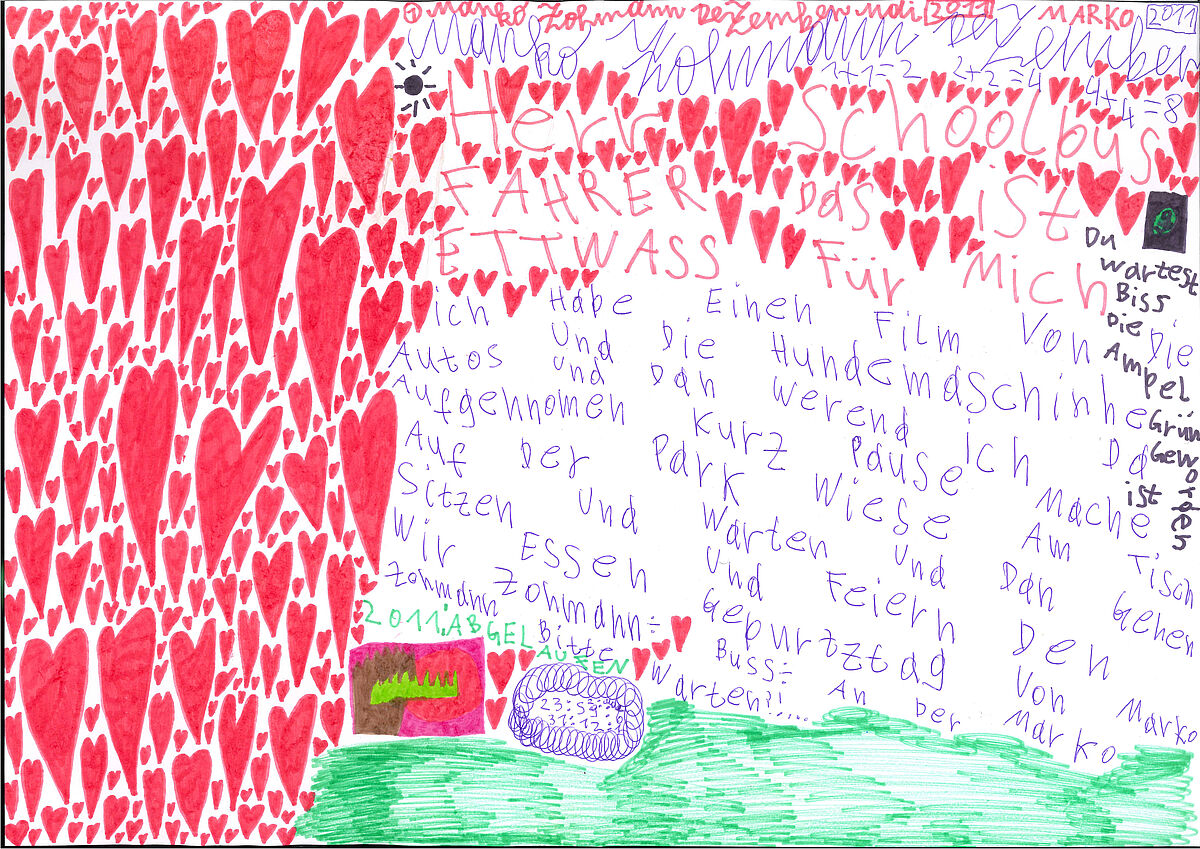 ① Marko Zohmann DeZember Mai 2011 MARKO 2011
Marko Zohmann DeZember
1+1=2 2+2=4 4+4=8
Herr Schoolbus
FAHRER Das ist
ETTWASS Für Mich
Du
wartest
Biss
Die
Ampel
Grün
Geworden
ist
ich Habe Einen Film Von Die
Autos Und Die Hundemaschinhe
Und Dan Werend ich Da
Aufgennomen Kurz Pause Mache
Auf Der Park Wiese Am Tisch
Sitzen Und Warten Und Dan Gehen
Wir ESSEN Und Feiern Den
Zohmann Zohmann÷ Gepurtztag Von Marko
Bitte Buss÷ An Der Marko
Warten?!.....
2011, ABGELAUFEN
23:59
31.12